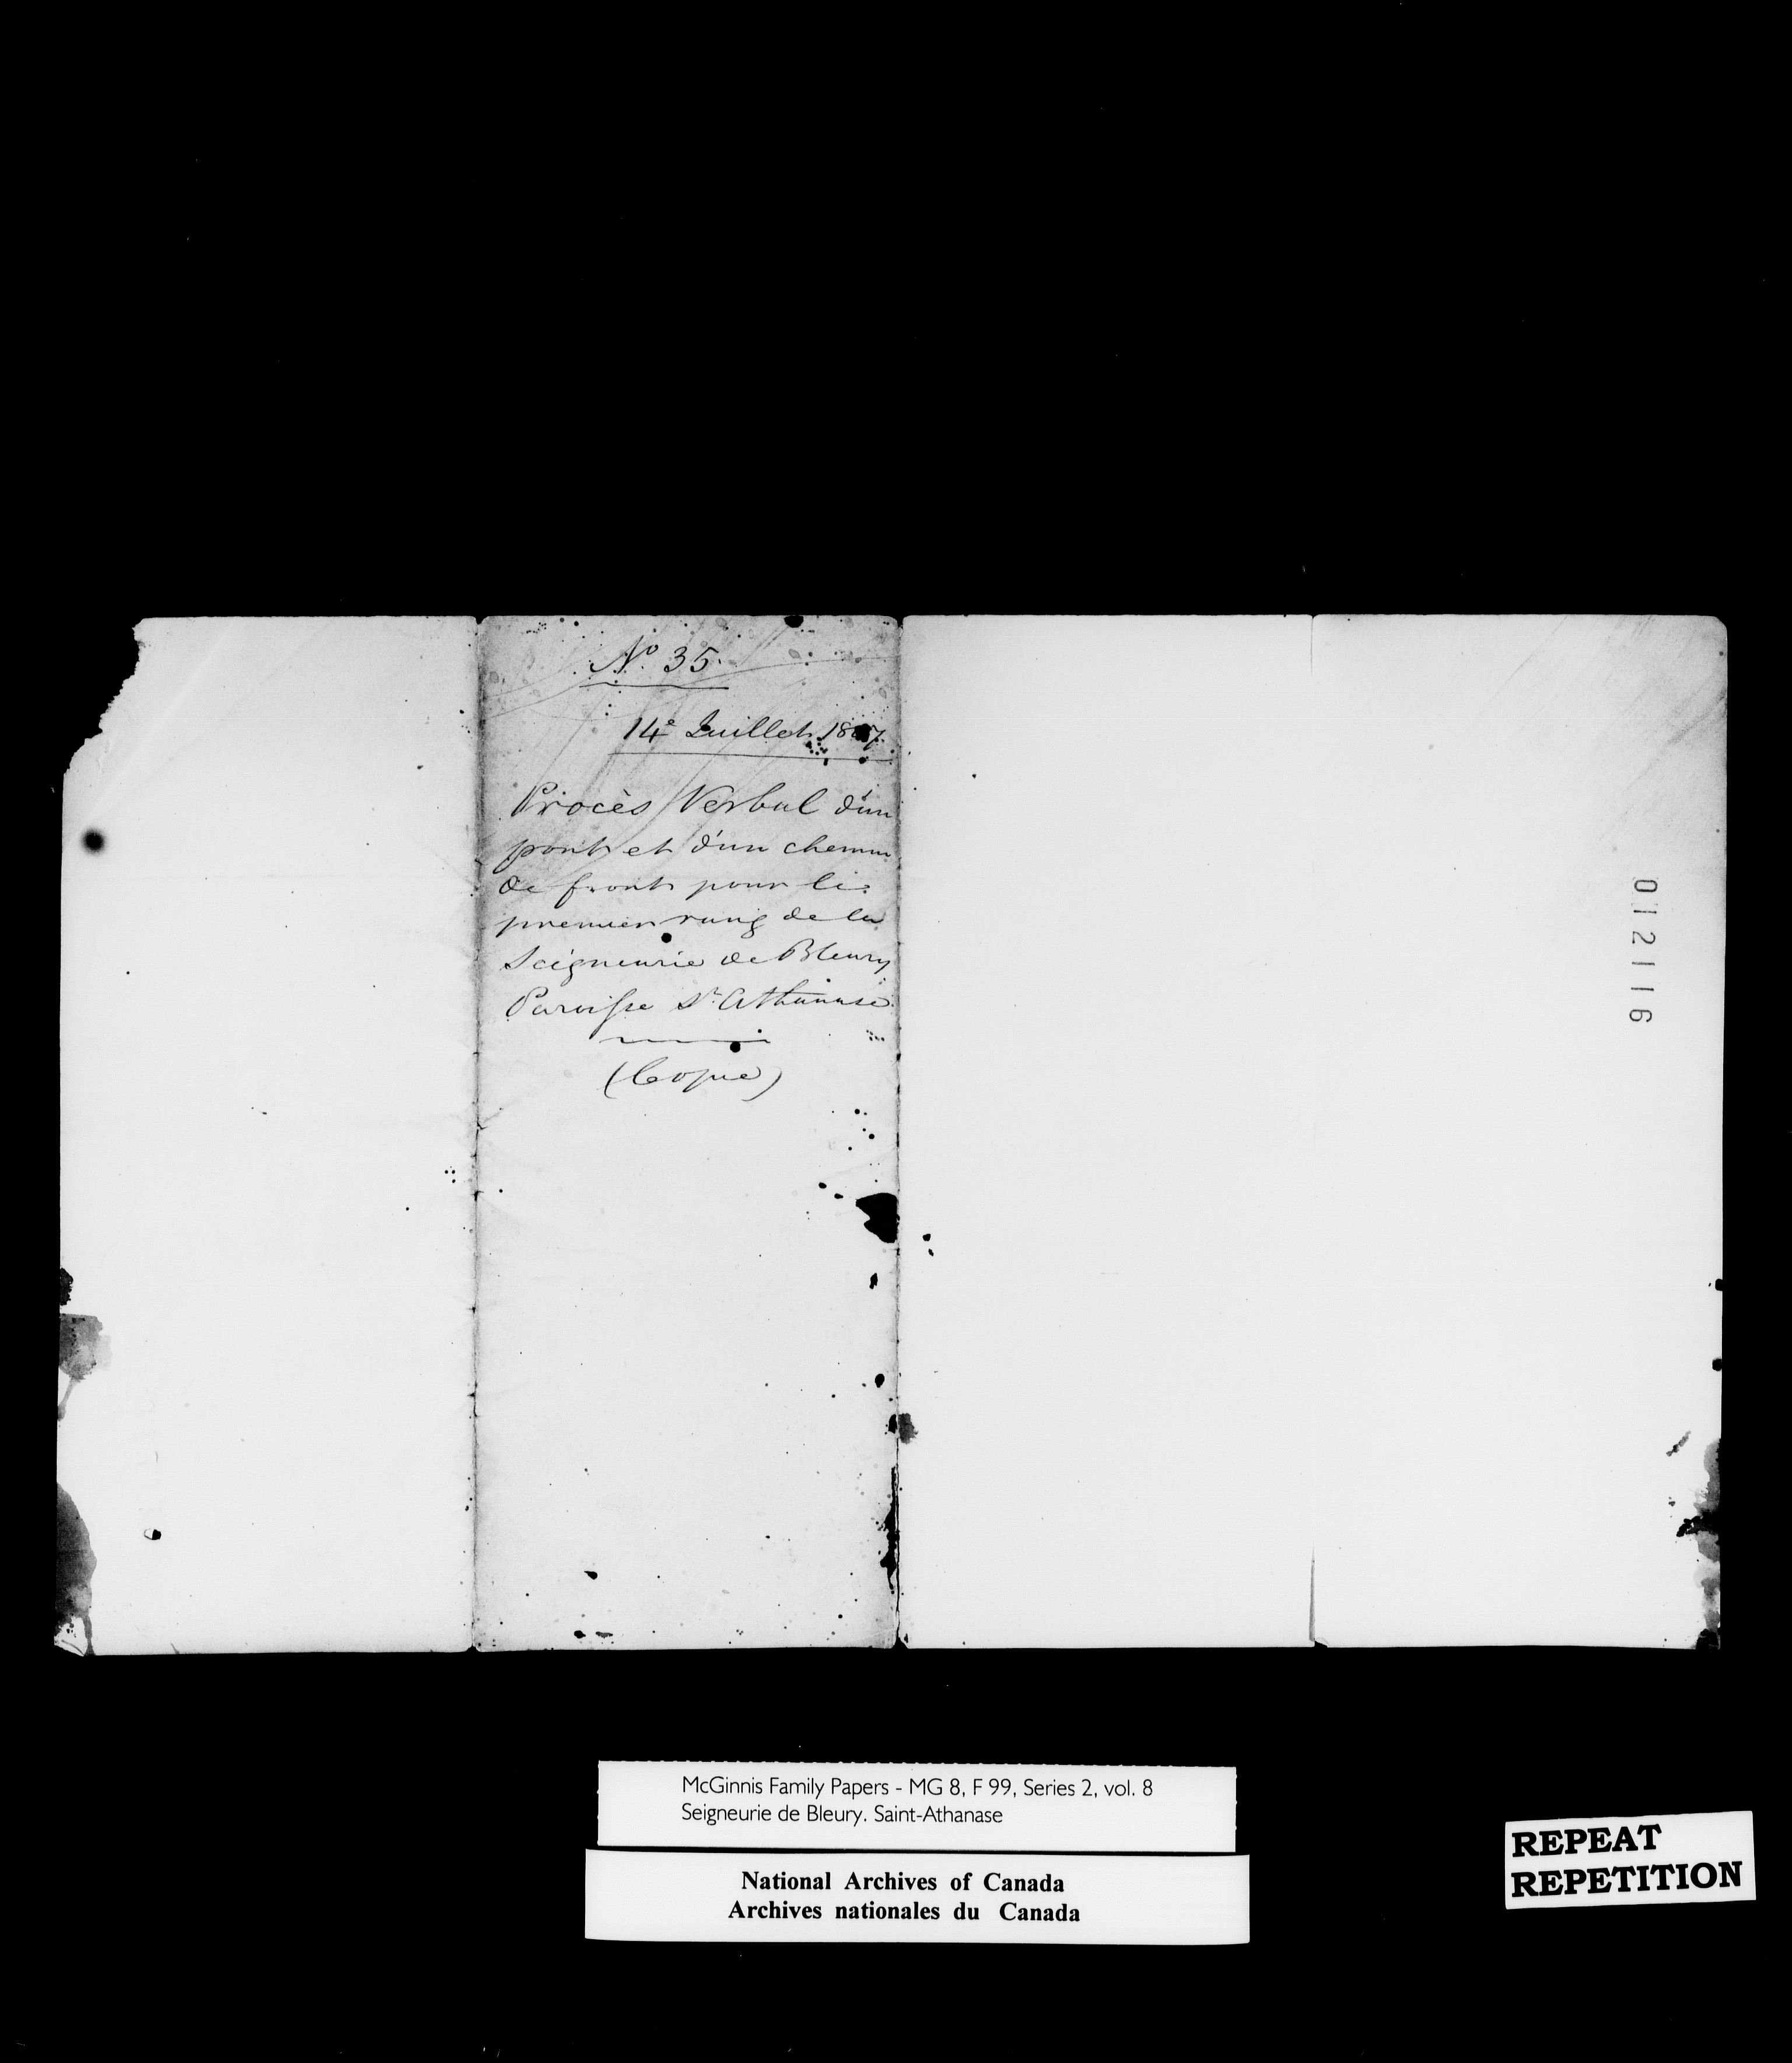 No 35.
14e Juillet
Procès Verbal d'un
pont et d'un chemin
de front pour le
premier rang de la
Seigneurie de Bleury
Paroisse St. Athanase
(Copie)
012116
McGinnis Family Papers - MG 8, F 99, Series 2, vol. 8
Seigneurie de Bleury. Saint-Athanase
National Archives of Canada
Archives nationales du Canada
REPEAT
REPETITION